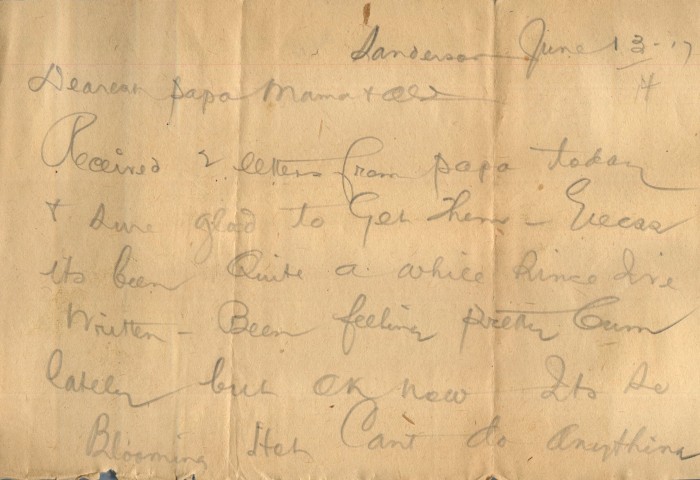 Sanderson June 13-17
Dearest Papa Mama + all
Received 2 letters from papa today
+ sure glad to Get them - Guess
its been Quite a while since I've
Written - Been feeling pretty Bum
lately but OK now Its so
Blooming Hot Can't do anything